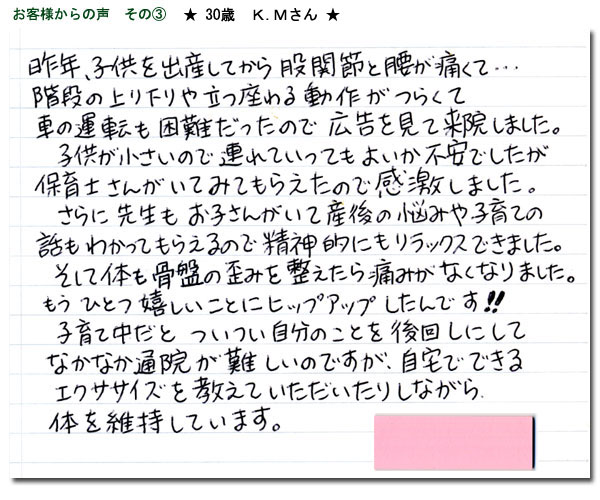 お客様からの声　その③　★ 30歳　K.Mさん ★
昨年、子供を出産してから股関節と腰が痛くて…
階段の上り下りや立つ座わる動作がつらくて
車の運転も困難だったので広告を見て来院しました。
子供が小さいので連れていってもよいか不安でしたが
保育士さんがいてみてもらえたので感激しました。
さらに先生もお子さんがいて産後の悩みや子育ての
話もわかってもらえるので精神的にもリラックスできました。
そして体も骨盤の歪みを整えたら痛みがなくなりました。
もうひとつ嬉しいことにヒップアップしたんです!!
子育て中だとついつい自分のことを後回しにして
なかなか通院が難しいのですが、自宅でできる
エクササイズを教えていただいたりしながら
体を維持しています。